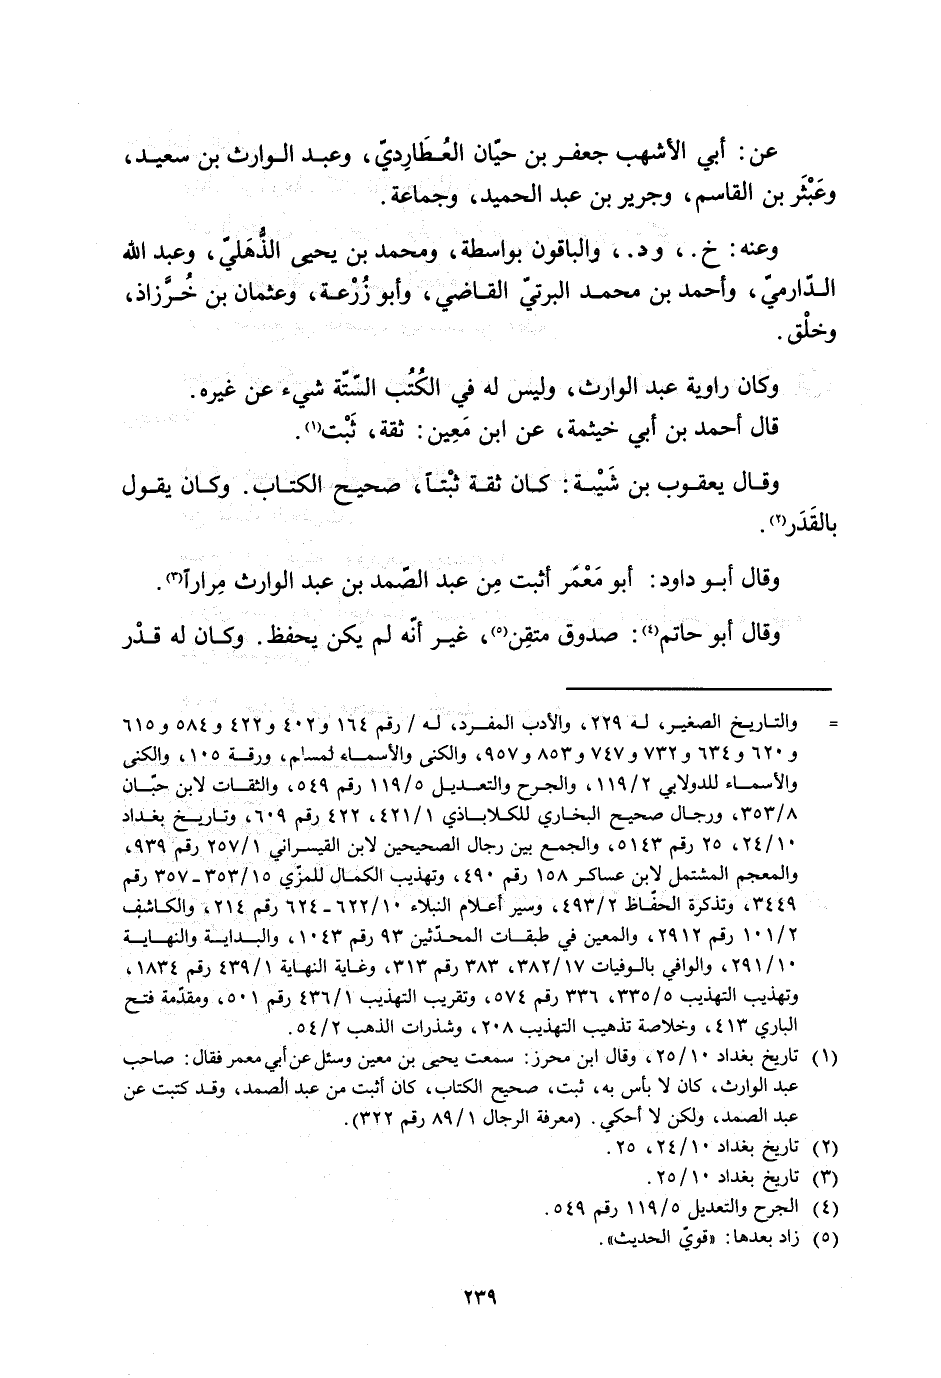 عن: أبي الأشهب جعفر بن حيّان العُطَارِديّ، وعبد الوارث بن سعيد،
وعَبْثَر بن القاسم، وجرير بن عبد الحميد، وجماعة.
وعنه: خ.، و د.، والباقون بواسطة، ومحمد بن يحيى الذُّهَليّ، وعبد الله
الدّارميّ، وأحمد بن محمد البرتيّ القاضي، وأبو زُرْعة، وعثمان بن خُرَّزاذ،
وخلْق.
وكان راوية عبد الوارث، وليس له في الكُتُب السّتّة شيء عن غيره.
قال أحمد بن أبي خيثمة، عن ابن مَعِين: ثقة، ثَبْت(١).
وقال يعقوب بن شَيْبة: كان ثقة ثبْتاً، صحيح الكتاب. وكان يقول
بالقَدَر(٢).
وقال أبو داود: أبو مَعْمَر أثبت مِن عبد الصّمد بن عبد الوارث مِراراً(٣).
وقال أبو حاتم(٤): صدوق متقِن(٥)، غير أنّه لم يكن يحفظ. وكان له قدْر
= والتاريخ الصغير، له ٢٢٩، والأدب المفرد، له / رقم ١٦٤ و ٤٠٢ و ٤٢٢ و ٥٨٤ و ٦١٥
و ٦٢٠ و ٦٣٤ و ٧٣٢ و ٧٤٧ و ٨٥٣ و ٩٥٧، والكنى والأسماء لمسلم، ورقة ١٠٥، والكنى
والأسماء للدولابي ١١٩/٢، والجرح والتعديل ١١٩/٥ رقم ٥٤٩، والثقات لابن حبّان
٣٥٣/٨، ورجال صحيح البخاري للكلاباذي ٤٢١/١، ٤٢٢ رقم ٦٠٩، وتاريخ بغداد
٢٤/١٠، ٢٥ رقم ٥١٤٣، والجمع بين رجال الصحيحين لابن القيسراني ٢٥٧/١ رقم ٩٣٩،
والمعجم المشتمل لابن عساكر ١٥٨ رقم ٤٩٠، وتهذيب الكمال للمزّي ٣٥٣/١٥ - ٣٥٧ رقم
٣٤٤٩، وتذكرة الحفّاظ ٤٩٣/٢، وسير أعلام النبلاء ٦٢٢/١٠ - ٦٢٤ رقم ٢١٤، والكاشف
١٠١/٢ رقم ٢٩١٢، والمعين في طبقات المحدّثين ٩٣ رقم ١٠٤٣، والبداية والنهاية
٢٩١/١٠، والوافي بالوفيات ٣٨٢/١٧، ٣٨٣ رقم ٣١٣، وغاية النهاية ٤٣٩/١ رقم ١٨٣٤،
وتهذيب التهذيب ٣٣٥/٥، ٣٣٦ رقم ٥٧٤، وتقريب التهذيب ٤٣٦/١ رقم ٥٠١، ومقدّمة فتح
الباري ٤١٣، وخلاصة تذهيب التهذيب ٢٠٨، وشذرات الذهب ٥٤/٢.
(١) تاريخ بغداد ٢٥/١٠، وقال ابن محرز: سمعت يحيى بن معين وسئل عن أبي معمر فقال: صاحب
عبد الوارث، كان لا بأس به، ثبت، صحيح الكتاب، كان أثبت من عبد الصمد، وقد كتبت عن
عبد الصمد، ولكن لا أحكي. (معرفة الرجال ٨٩/١ رقم ٣٢٢).
(٢) تاريخ بغداد ٢٤/١٠، ٢٥.
(٣) تاريخ بغداد ٢٥/١٠.
(٤) الجرح والتعديل ١١٩/٥ رقم ٥٤٩.
(٥) زاد بعدها: «قويّ الحديث».
٢٣٩